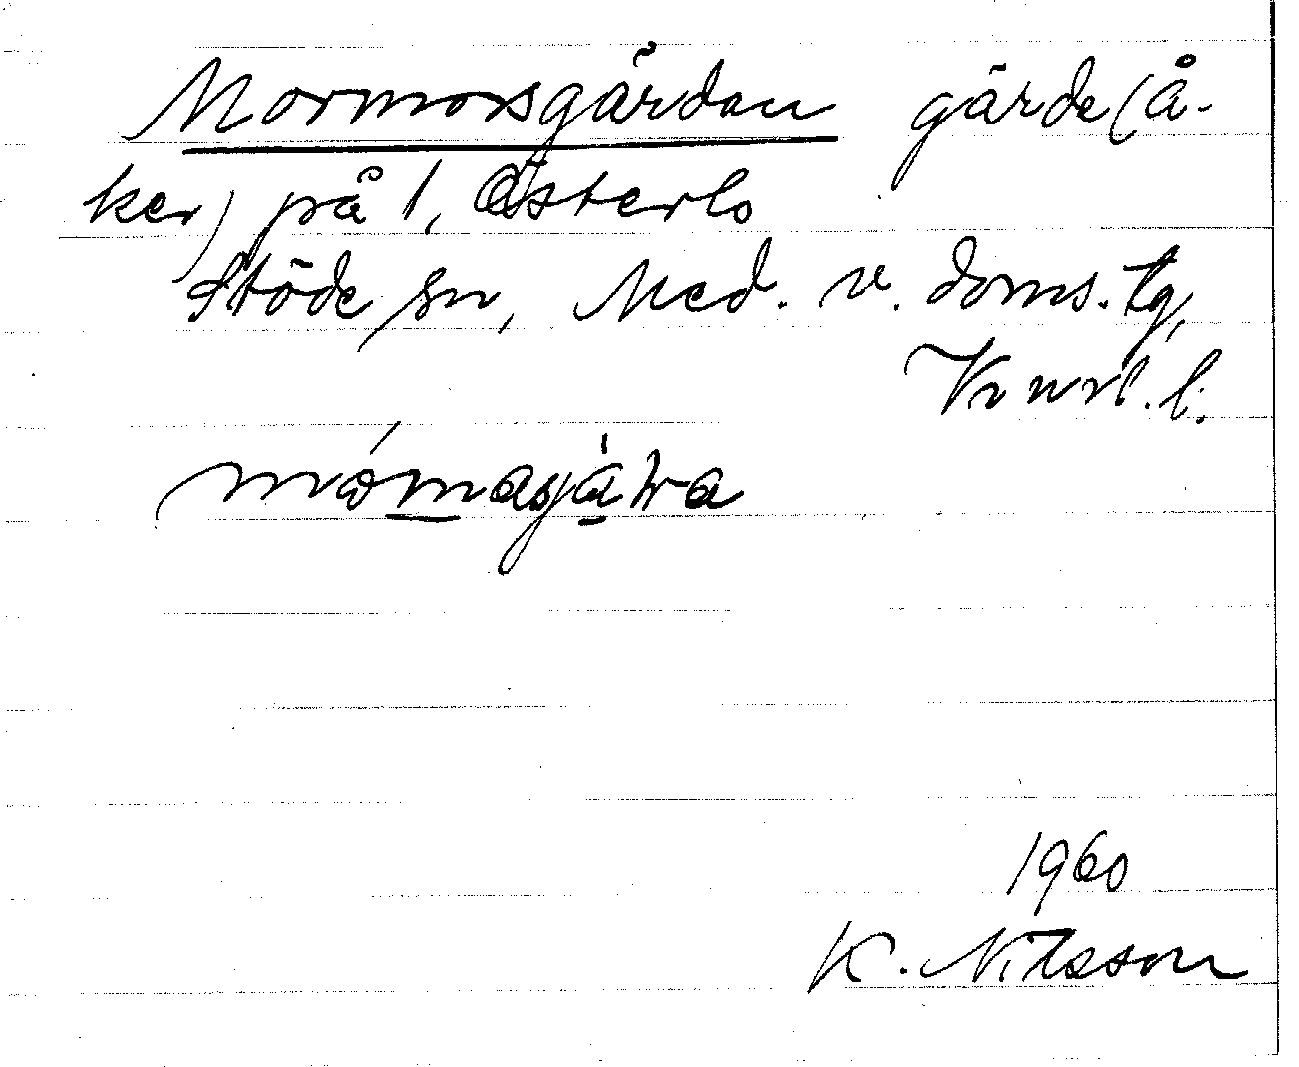 Mormorsgärdan gärde (å-
ker) på 1, Österlo
Stöde sn, Med. v. doms. tg,
Vnrl. l.
1960
K. Nilsson